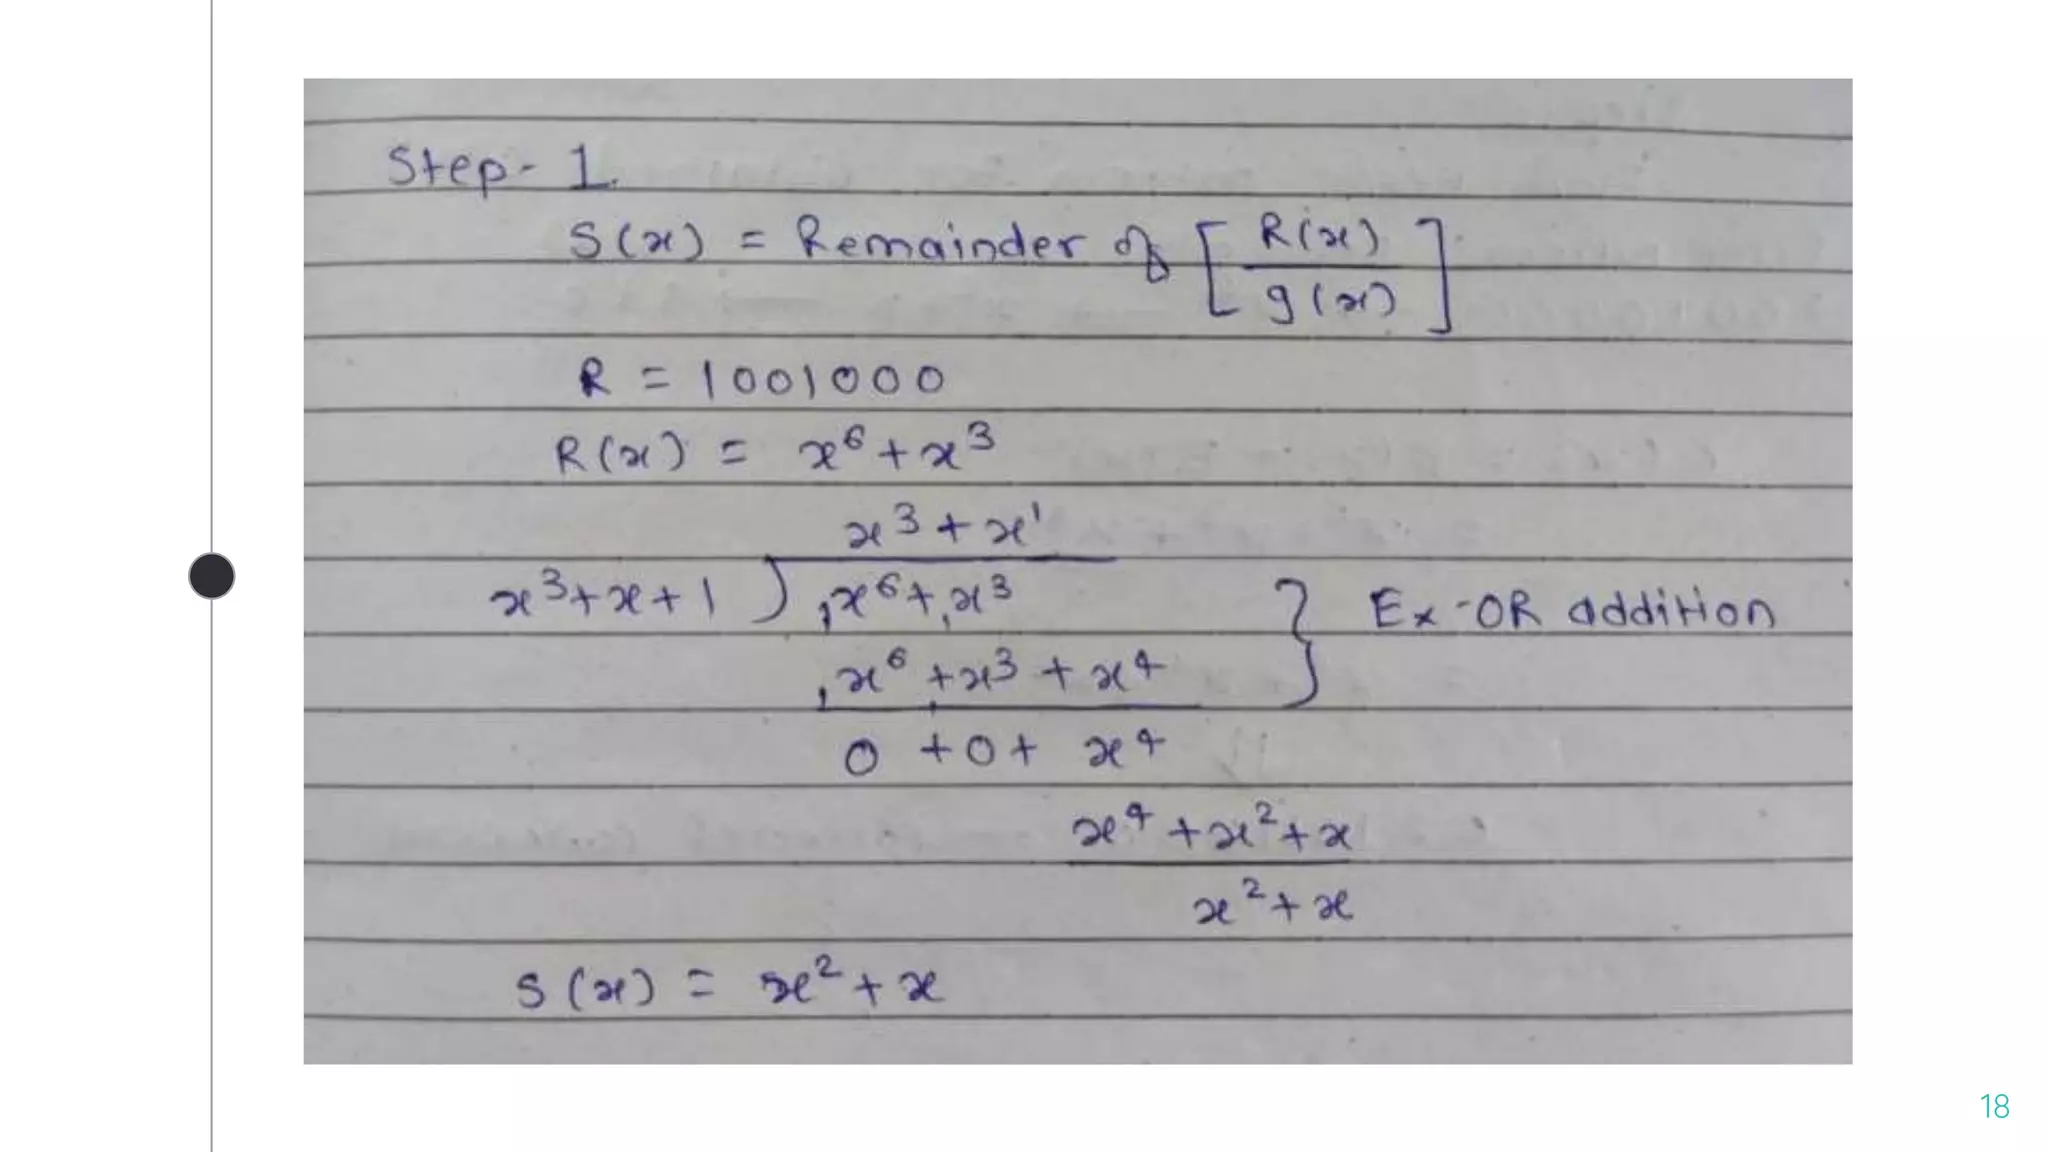 Step - 1.
S(x) = Remainder of [ R(x) / g(x) ]
R = 1001000
R(x) = x⁶ + x³
x³ + x¹
x³ + x + 1 ) x⁶ + x³ } Ex-OR addition
x⁶ + x³ + x⁴
0 + 0 + x⁴
x⁴ + x² + x
x² + x
S(x) = x² + x
18